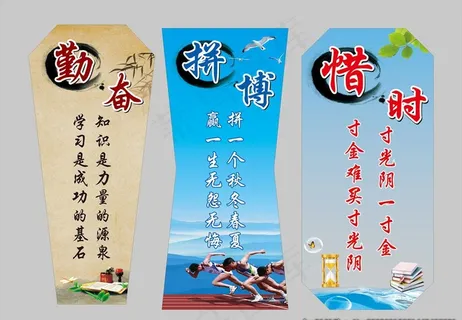 勤奋
知识是力量的源泉
学习是成功的基石
拼博
拼一个秋冬春夏
赢一生无怨无悔
惜时
寸光阴一寸金
寸金难买寸光阴